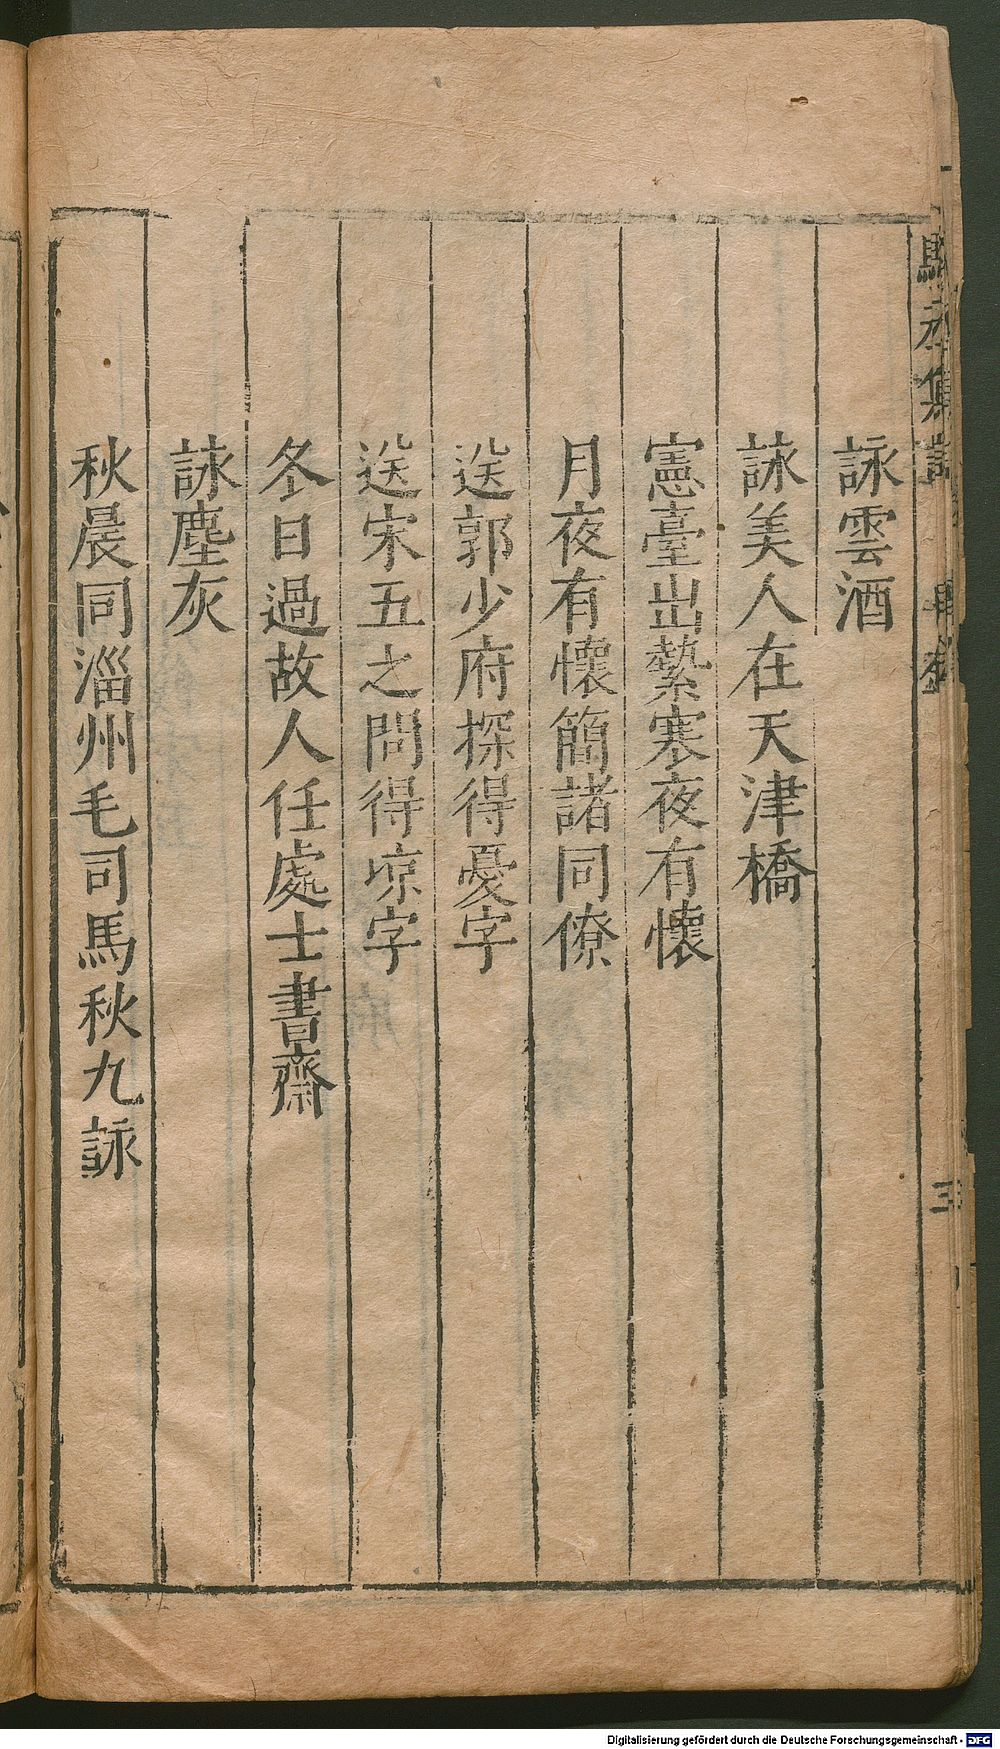 詠雲酒
詠美人在天津橋
憲臺出縶寒夜有懷
月夜有懷簡諸同僚
送郭少府探得憂字
送宋五之問得凉字
冬日過故人任處士書齋
詠塵灰
秋晨同淄州毛司馬秋九詠
Digitalisierung gefördert durch die Deutsche Forschungsgemeinschaft - DFG